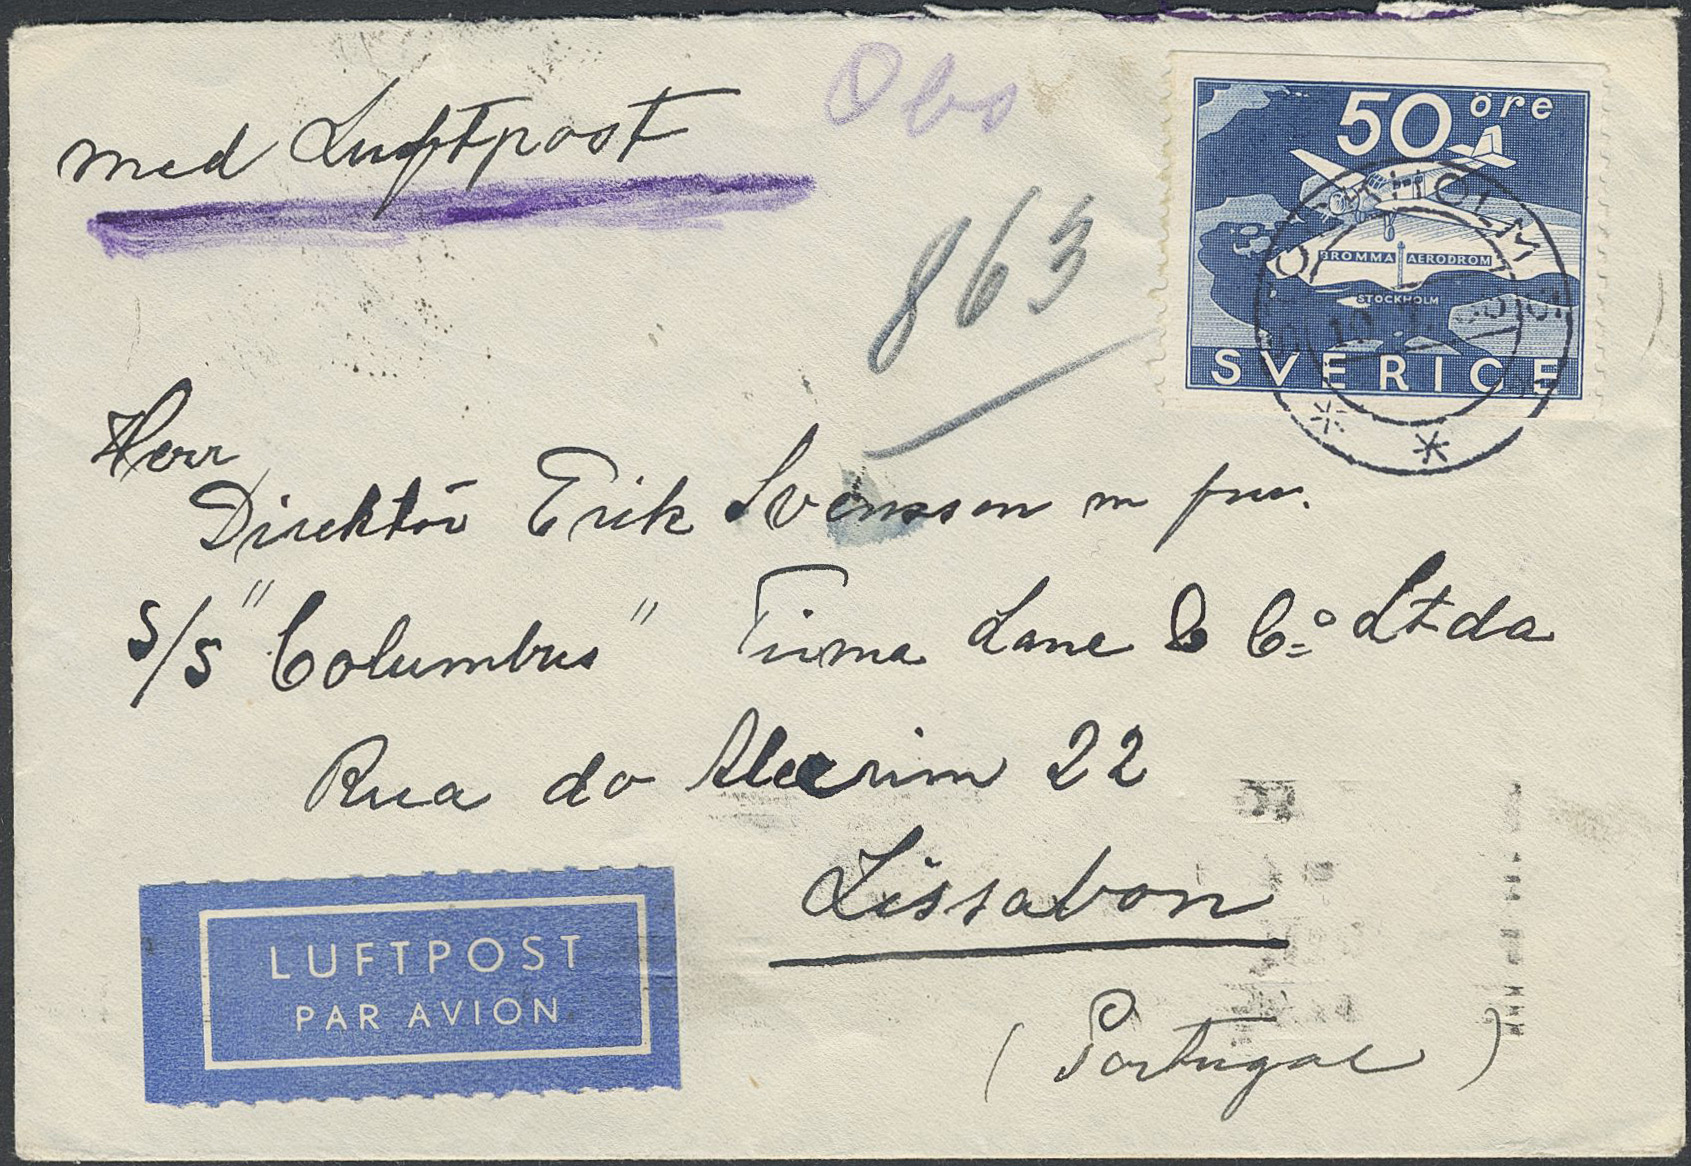 med Luftpost
Obs
863
50 öre
BROMMA AERODROM
STOCKHOLM
SVERIGE
STOCKHOLM
Herr
Direktör Erik Svensson m fru.
S/S "Columbus" Firma Lane & Co. Ltda
Rua do Alecrim 22
Lissabon
(Portugal)
LUFTPOST
PAR AVION